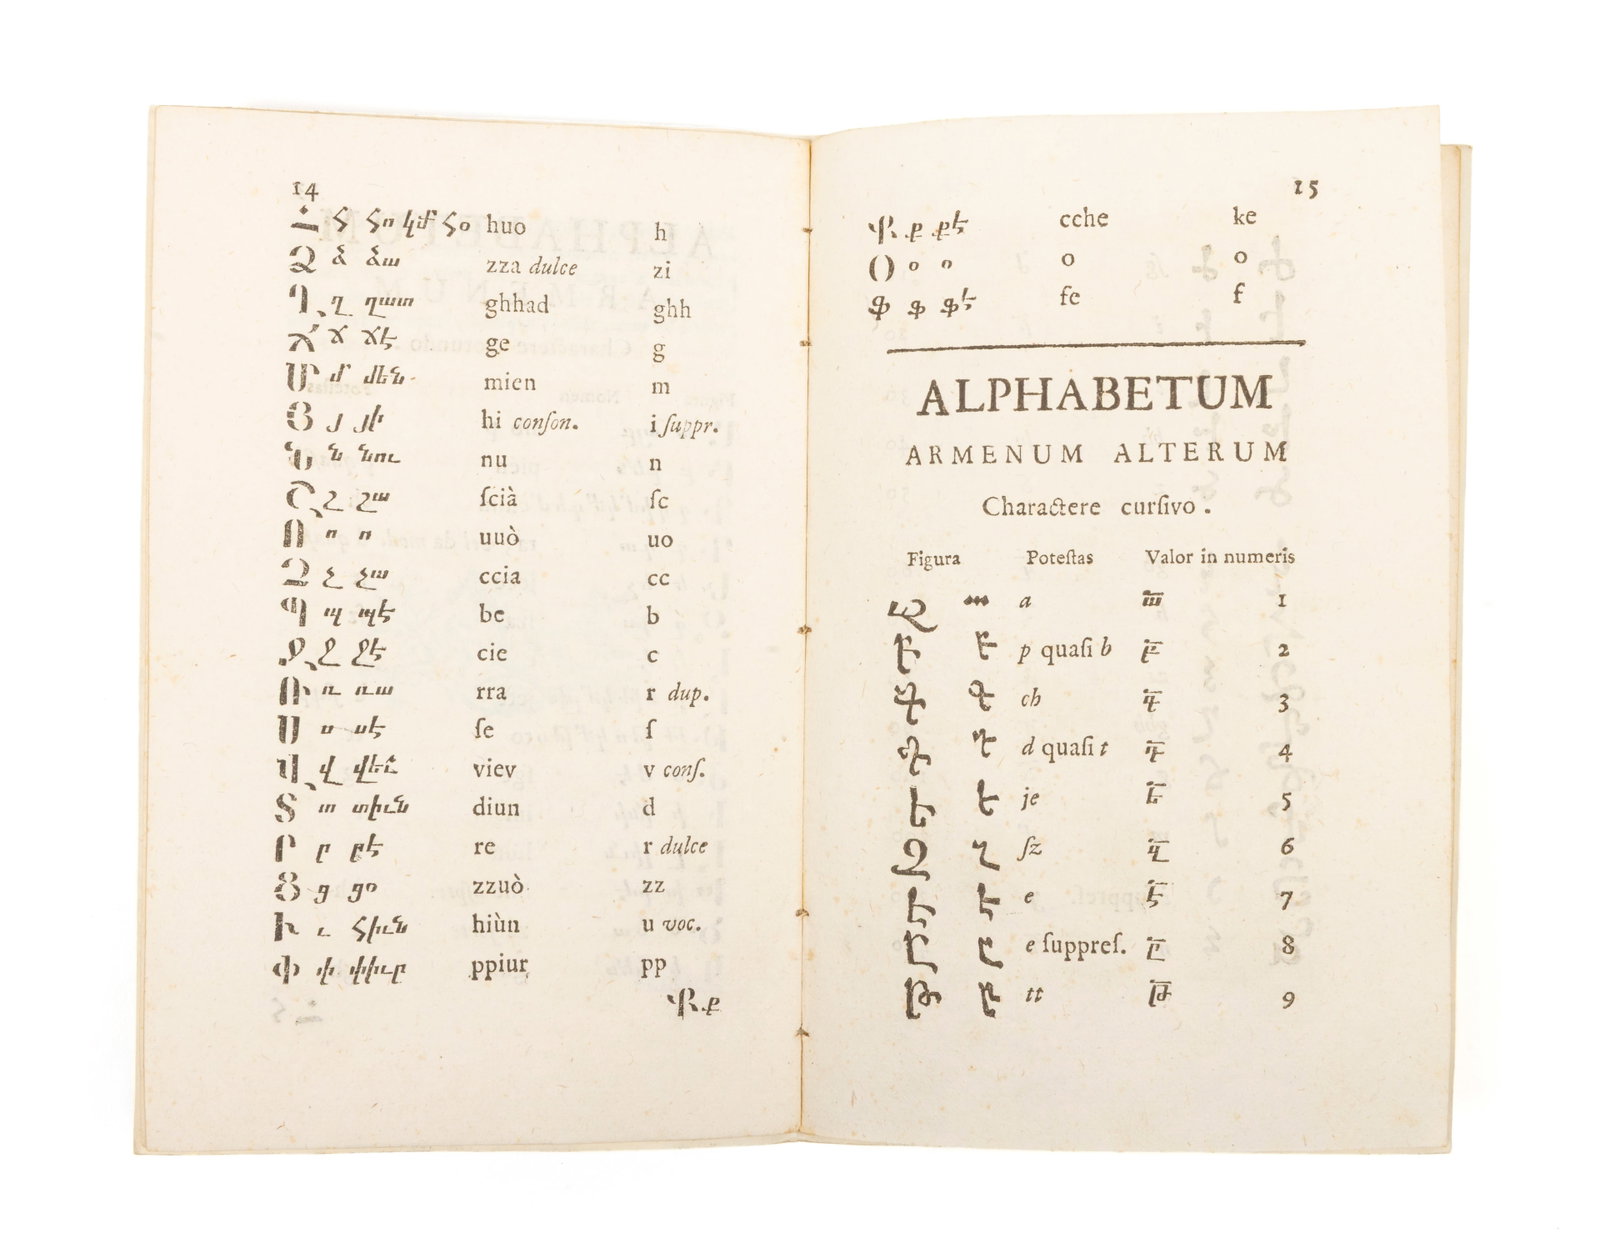 14
Հ հ հո կամ հօ huo h
Ձ ձ ձա zza dulce zi
Ղ ղ ղատ ghhad ghh
Ճ ճ ճէ ge g
Մ մ մեն mien m
Յ յ յի hi conſon. i ſuppr.
Ն ն նու nu n
Շ շ շա ſcià ſc
Ո ո ո uuò uo
Չ չ չա ccia cc
Պ պ պէ be b
Ջ ջ ջէ cie c
Ռ ռ ռա rra r dup.
Ս ս սէ ſe ſ
Վ վ վեւ viev v conſ.
Տ տ տիւն diun d
Ր ր րէ re r dulce
Ց ց ցո zzuò zz
Ւ ւ հիւն hiùn u voc.
Փ փ փիւր ppiur pp
Ք ք
15
Ք ք քէ cche ke
Օ օ օ o o
Ֆ ֆ ֆէ fe f
ALPHABETUM
ARMENUM ALTERUM
Charactere curſivo.
Figura Poteſtas Valor in numeris
Ա ա a ա 1
Բ բ p quaſi b բ 2
Գ գ ch գ 3
Դ դ d quaſi t դ 4
Ե ե je ե 5
Զ զ ſz զ 6
Է է e է 7
Ը ը e ſuppreſ. ը 8
Թ թ tt թ 9